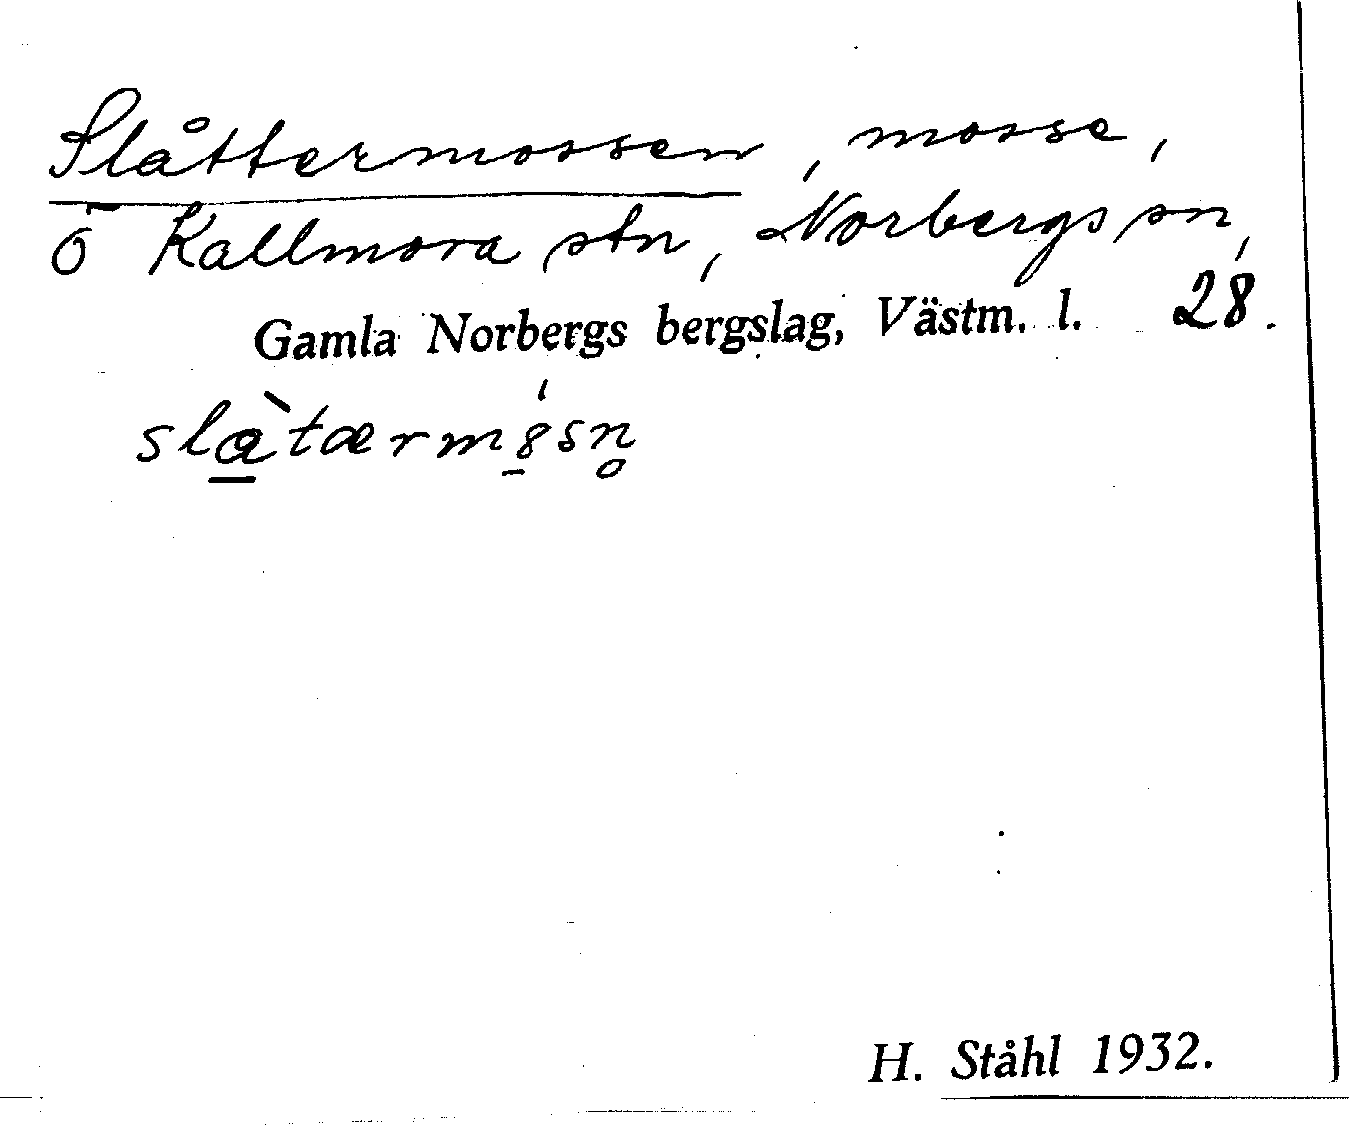 Slåttermossen, mosse,
ö Kallmora stn, Norbergs sn,
Gamla Norbergs bergslag, Västm. l. 28.
slàtærm8sn̥
H. Ståhl 1932.